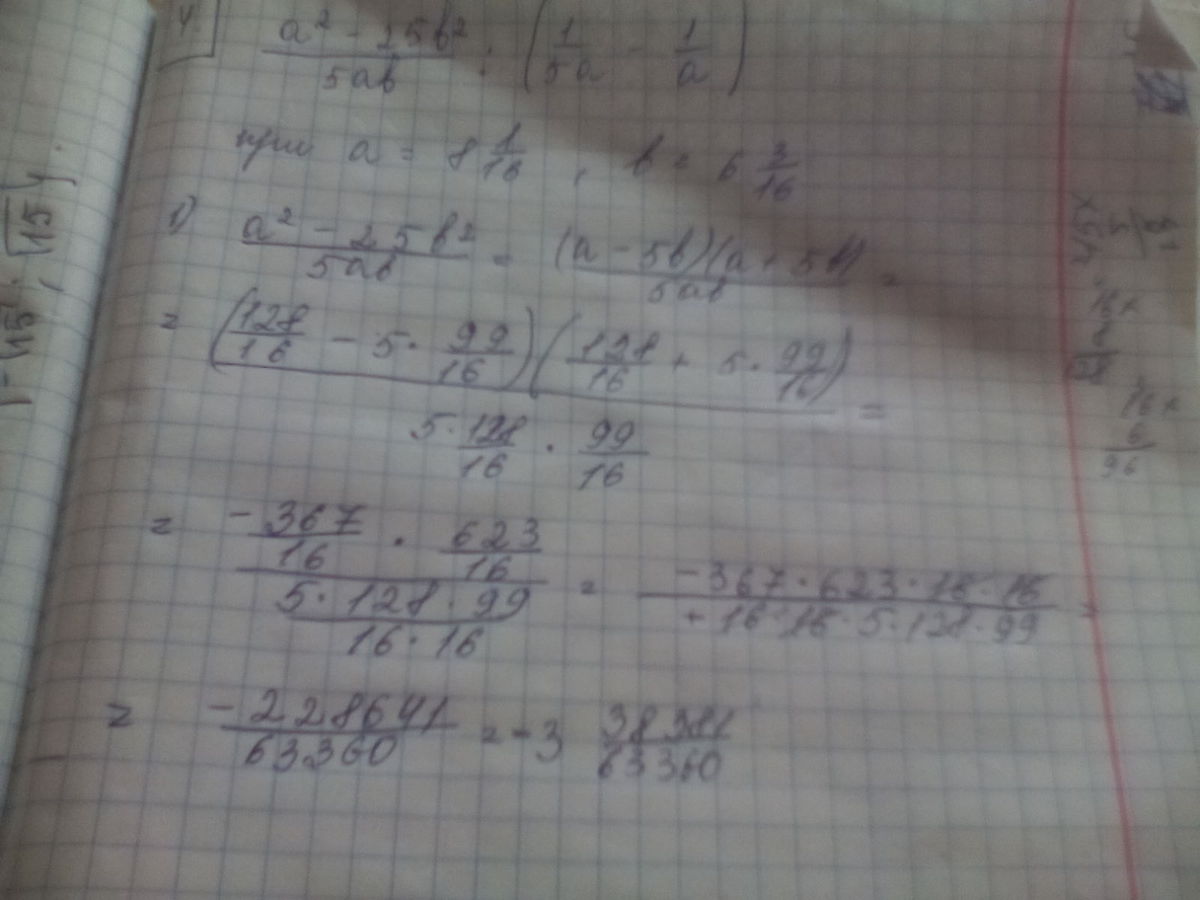 4.
(a² - 25b²)/(5ab) : (1/(5a) - 1/a)
при a = 8 1/16 , b = 6 3/16
1) (a² - 25b²)/(5ab) = ((a - 5b)(a + 5b))/(5ab) =
= ((128/16 - 5 · 99/16)(128/16 + 5 · 99/16))/(5 · 128/16 · 99/16) =
= (-367/16 · 623/16)/((5 · 128 · 99)/(16 · 16)) = (-367 · 623 · 16 · 16)/(+ 16 · 16 · 5 · 128 · 99) =
= -228641/63360 = -3 38381/63360
16 ×
8
16 ×
6
96
15